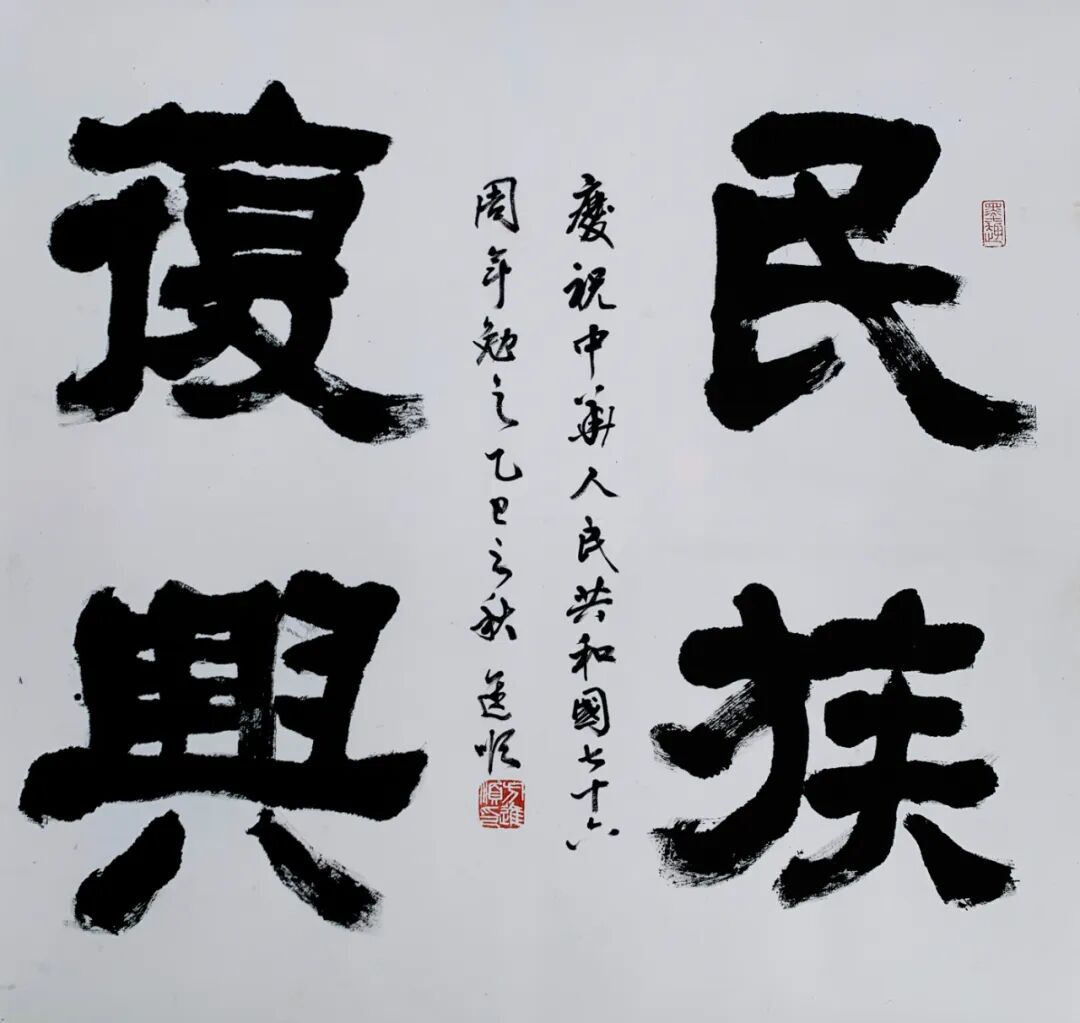 民族
復興
慶祝中華人民共和國七十六
周年勉之乙巳之秋 進順
墨趣